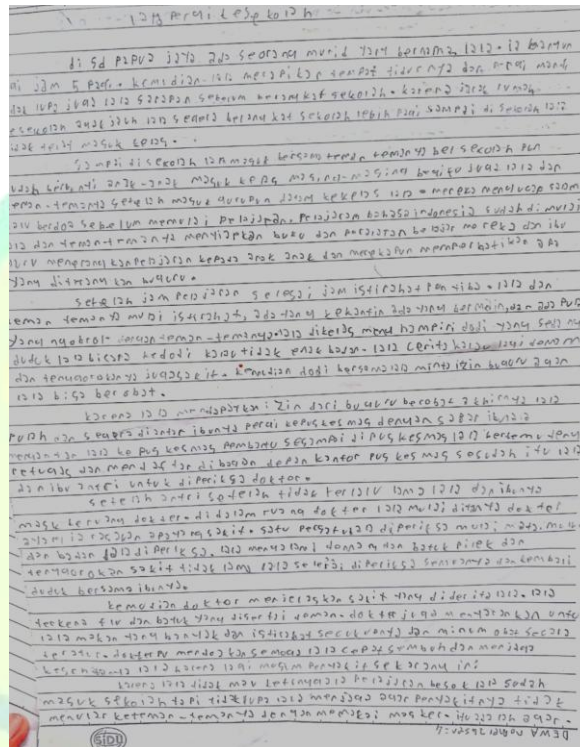 lala Pergi kesekolah
di sd papua jaya ada seorang murid yang bernama lala. ia bangun
jam 5 pagi. kemudian lala merapikan tempat tidurnya dan mandi
lupa juga lala sarapan sebelum berangkat sekolah. karena jarak rumah
kesekolah agak jauh lala segera berangkat sekolah lebih pagi sampai di sekolah lala
tidak masuk kelas.
sampai disekolah lala masuk bersama teman temannya bel sekolah pun
sudah berbunyi anak-anak masuk kelas masing-masing begitu juga lala dan
teman-temannya setelah masuk gurupun datang kekelas lala. mereka mengucap salam
lalu berdoa sebelum memulai pelajaran. Pelajaran bahasa indonesia sudah di mulai
lala dan teman-temannya menyiapkan buku dan peralatan belajar mereka dan ibu
guru menerangkan pelajaran kepada anak anak dan merekapun memperhatikan apa
yang diterangkan buguru.
setelah jam pelajaran selesai jam istirahat pun tiba. lala dan
teman temannya mulai istirahat, ada yang kekantin ada yang bermain, dan ada pula
yang ngobrol dengan teman-temannya. lala dikelas menghampiri dodi yang sedang
duduk lala bicara kedodi kalau tidak enak badan. lala cerita kalau lagi demam
dan tenggorokannya juga sakit. kemudian dodi bersama lala minta izin buguru agar
lala bisa berobat.
karena lala mendapatkan izin dari buguru berobat akhirnya lala
dan segera diantar ibunya pergi kepuskesmas dengan sabar ibu lala
lala ke puskesmas pembantu sesampai di puskesmas lala bertemu
petugas dan mendaftar dibagian depan kantor puskesmas sesudah itu lala
dan ibu antri untuk diperiksa doktor.
setelah antri setelah tidak terlalu lama lala dan ibunya
masuk keruang dokter. di dalam ruang dokter lala mulai ditanya doktor
apa yang sakit. satu persatu lala diperiksa mulai mata, mulut
dan badan lala di periksa. lala mengalami demam dan batuk pilek dan
tenggorokan sakit tidak lama lala selesai diperiksa semuanya dan kembali
duduk bersama ibunya.
kemudian doktor menjelaskan sakit yang diderita lala. lala
terkena flu dan batuk yang disertai demam. doktor juga menyarankan untuk
lala makan yang banyak dan istirahat secukupnya dan minum obat secara
teratur. dokter mendoakan semoga lala cepat sembuh dan menjaga
kesehatannya lala karena lagi musim penyakit sekarang ini.
karena lala tidak mau ketinggalan pelajaran besok lala sudah
masuk sekolah tapi tidak lupa lala menjaga agar penyakitnya tidak
menular keteman-temannya dengan memakai masker.
SIDU